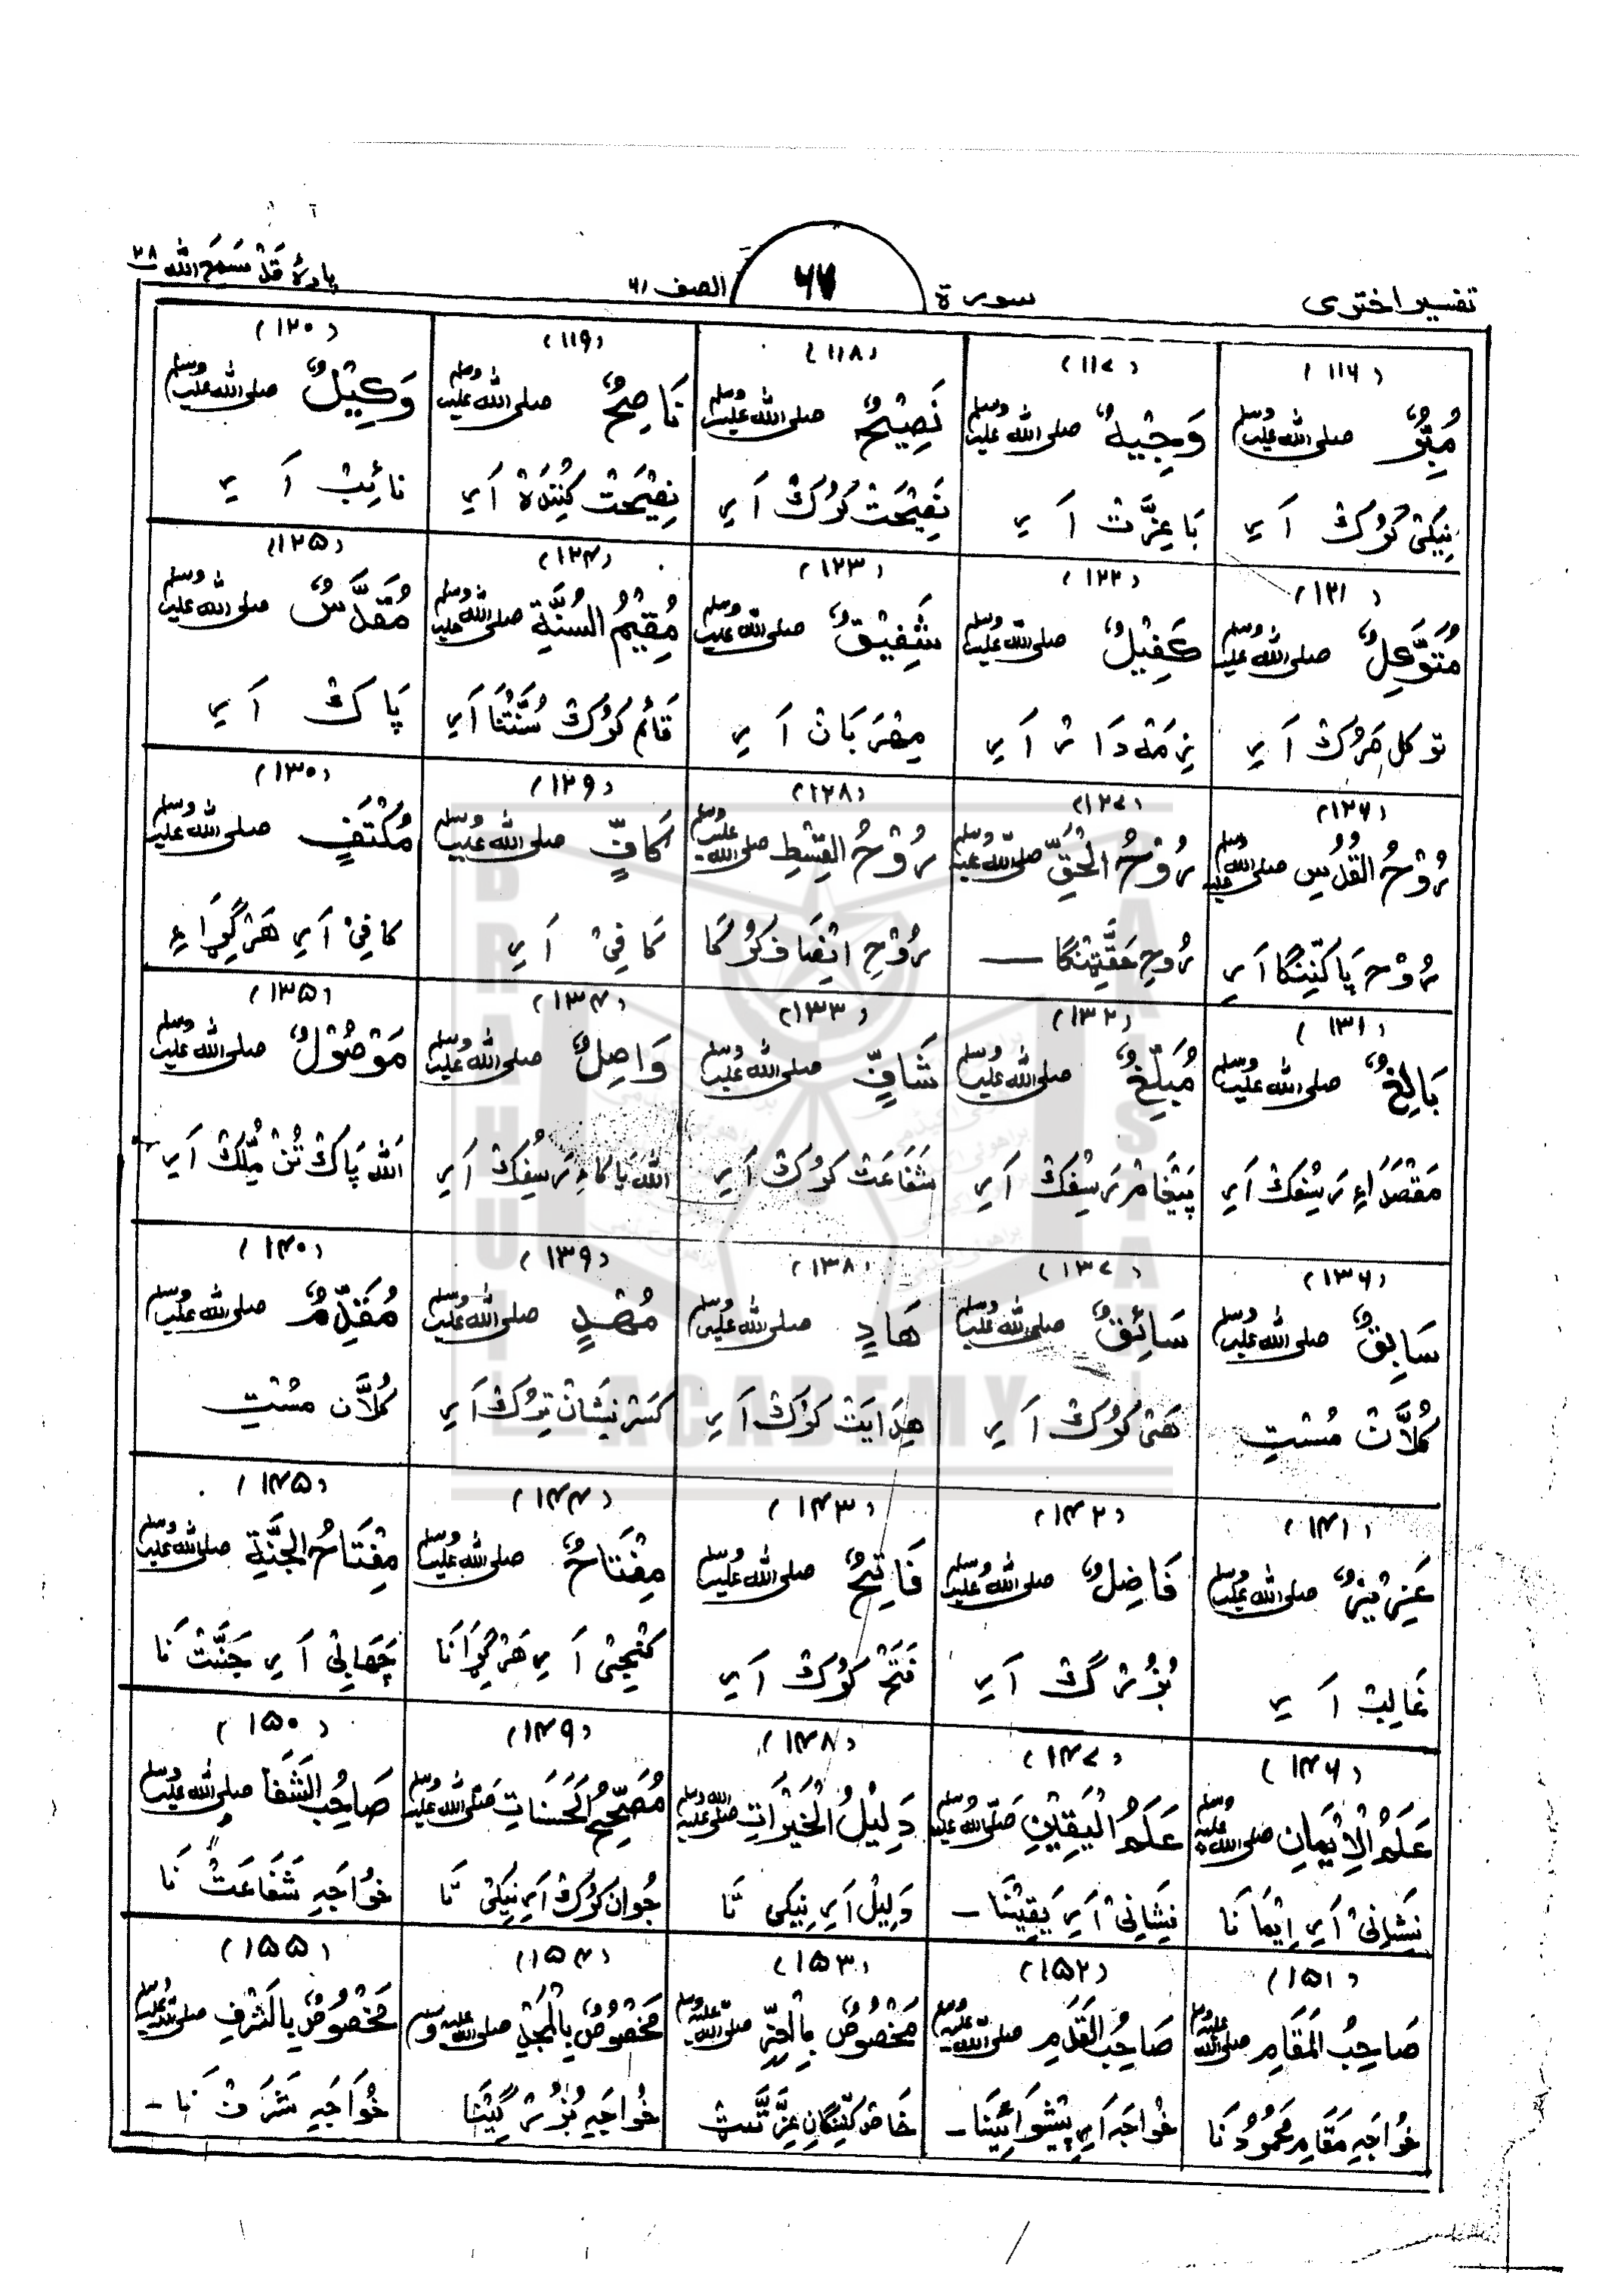 تفسیر اختری
سورة
۶۷
الصف ۶۱
پارهٔ قَدْ سَمِعَ الله ۲۸
(۱۱۶)
مُبِرٌّ صلى الله عليه وسلم
نِیکیْ کَرُوْکْ اَ یر
(۱۱۷)
وَجِیْهٌ صلى الله عليه وسلم
بَا عِزَّتْ اَ یر
(۱۱۸)
نَصِیْحٌ صلى الله عليه وسلم
نَصِیْحَتْ کَرُوْکْ اَ یر
(۱۱۹)
نَاصِحٌ صلى الله عليه وسلم
نِصِیْحَتْ کُنِنْدَهْ اَ یر
(۱۲۰)
وَکِیْلٌ صلى الله عليه وسلم
نائِبْ اَ یر
(۱۲۱)
مُتَوَکِّلٌ صلى الله عليه وسلم
توکل کَرُوْکْ اَ یر
(۱۲۲)
کَفِیْلٌ صلى الله عليه وسلم
ذِمَّهْ دَا رْ اَ یر
(۱۲۳)
شَفِیْقٌ صلى الله عليه وسلم
مِهْرَ بَانْ اَ یر
(۱۲۴)
مُقِیْمُ السُّنَّةِ صلى الله عليه وسلم
قَائم کَرُوْکْ سُنَّتْنَا اَیر
(۱۲۵)
مُقَدَّسٌ صلى الله عليه وسلم
پَاکْ اَ یر
(۱۲۶)
رُوْحُ الْقُدُسِ صلى الله عليه وسلم
رُوْحِ پَا کِّیْنگَا اَ یر
(۱۲۷)
رُوْحُ الْحَقِّ صلى الله عليه وسلم
رُوحِ حَقِّیْنگَا —
(۱۲۸)
رُوْحُ الْقِسْطِ صلى الله عليه وسلم
رُوْحِ اِنْصَاف کَرُوْکَا
(۱۲۹)
کَافٍّ صلى الله عليه وسلم
کَا فِیْ اَ یر
(۱۳۰)
مُکْتَفٍ صلى الله عليه وسلم
کا فِیْ اَ یر هَرْ گِرَاءِ
(۱۳۱)
بَالِغٌ صلى الله عليه وسلم
مَقْصَدَاءِ رَسِفِکْ اَ یر
(۱۳۲)
مُبَلِّغٌ صلى الله عليه وسلم
پَیْغَامْ رَسِفِکْ اَ یر
(۱۳۳)
شَافٍ صلى الله عليه وسلم
شَفَاعَتْ کَرُوْکْ اَ یر
(۱۳۴)
وَاصِلٌ صلى الله عليه وسلم
الله پَا کَاءِ رَسِفِکْ اَ یر
(۱۳۵)
مَوْصُوْلٌ صلى الله عليه وسلم
الله پَاکْ تُنْ مِلِّکْ اَ یر
(۱۳۶)
سَابِقٌ صلى الله عليه وسلم
کُلَّانْ مُسْتِ
(۱۳۷)
سَائِقٌ صلى الله عليه وسلم
هَتیْ کَرُوْکْ اَ یر
(۱۳۸)
هَادٍ صلى الله عليه وسلم
هِدَایَتْ کَرُوْکْ اَ یر
(۱۳۹)
مُهْدٍ صلى الله عليه وسلم
کَسَرْ نِشَانْ تِرُوْکْ اَ یر
(۱۴۰)
مُقَدِّمٌ صلى الله عليه وسلم
کُلَّان مُسْتِ
(۱۴۱)
عَزِیْزٌ صلى الله عليه وسلم
غَالِبْ اَ یر
(۱۴۲)
فَاضِلٌ صلى الله عليه وسلم
بُزُرْگْ اَ یر
(۱۴۳)
فَاتِحٌ صلى الله عليه وسلم
فَتَحْ کَرُوْکْ اَ یر
(۱۴۴)
مِفْتَاحٌ صلى الله عليه وسلم
کُنْجِیْ اَ یر هَرْ گِرَانَا
(۱۴۵)
مِفْتَاحُ الْجَنَّةِ صلى الله عليه وسلم
چَهَابِیْ اَ یر جَنَّتْ نَا
(۱۴۶)
عَلَمُ الْاِیْمَانِ صلى الله عليه وسلم
نِشَانِیْ اَ یر اِیْمَا نَا
(۱۴۷)
عَلَمُ الْیَقِیْنِ صلى الله عليه وسلم
نِشَانِیْ اَ یر یَقِیْنَا —
(۱۴۸)
دَلِیْلُ الْخَیْرَاتِ صلى الله عليه وسلم
دَلِیْلْ اَ یر نِیَکی نَا
(۱۴۹)
مُصَحِّحُ الْحَسَنَاتِ صلى الله عليه وسلم
جُوان کَرُوْکْ اَیر نِیَکیْ نَا
(۱۵۰)
صَاحِبُ الشَّفَا صلى الله عليه وسلم
خواجَهِ شَفَاعَتْ نَا
(۱۵۱)
صَاحِبُ الْمَقَامِ صلى الله عليه وسلم
خُواجَهِ مَقَامِ مَحْمُوْدْنَا
(۱۵۲)
صَاحِبُ الْقَدَمِ صلى الله عليه وسلم
خواجَه اَ یر پیْشوَائِیْنَا —
(۱۵۳)
مَخْصُوْصٌ بِالْعِزِّ صلى الله عليه وسلم
خَاصْ کِنِّنگَانِ عِزَّتَّتْ
(۱۵۴)
مَخْصُوْصٌ بِالْمَجْدِ صلى الله عليه وسلم
خواجَهِ بُزُرْگِیْنَا
(۱۵۵)
مَخْصُوْصٌ بِالشَّرَفِ صلى الله عليه وسلم
خُواجَهِ شَرَفْ نَا —
BRAHUI
ACADEMY